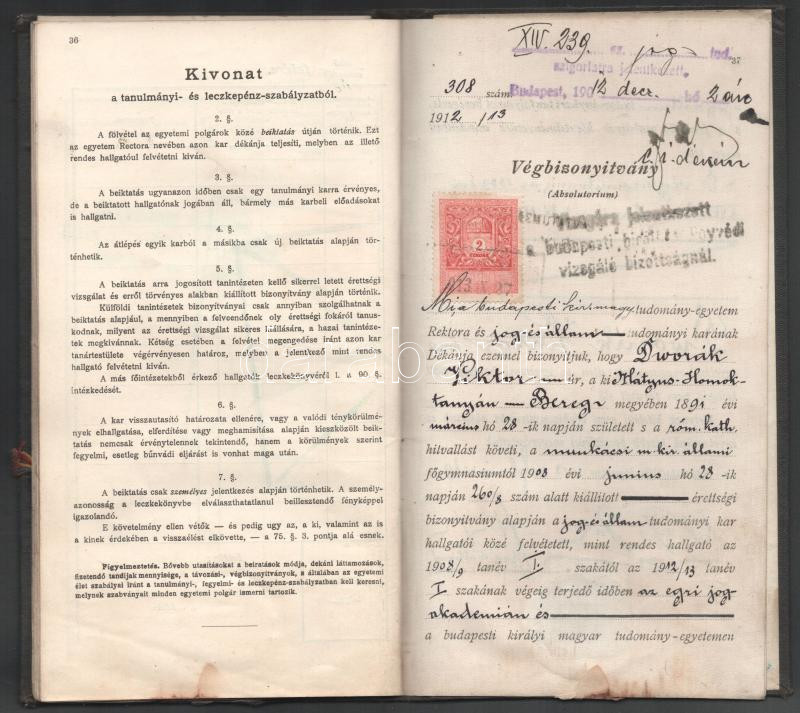 36
Kivonat
a tanulmányi- és leczkepénz-szabályzatból.
2. §.
A fölvétel az egyetemi polgárok közé beiktatás útján történik. Ezt
az egyetem Rectora nevében azon kar dékánja teljesíti, melyben az illető
rendes hallgatóul felvétetni kiván.
3. §.
A beiktatás ugyanazon időben csak egy tanulmányi karra érvényes,
de a beiktatott hallgatónak jogában áll, bármely más karbeli előadásokat
is hallgatni.
4. §.
Az átlépés egyik karból a másikba csak új beiktatás alapján tör-
ténhetik.
5. §.
A beiktatás arra jogosított tanintézeten kellő sikerrel letett érettségi
vizsgálat és erről törvényes alakban kiállított bizonyítvány alapján történik.
Külföldi tanintézetek bizonyítványai csak annyiban szolgálhatnak a
beiktatás alapjául, a mennyiben a felveendőnek oly érettségi fokáról tanus-
kodnak, milyent az érettségi vizsgálat sikeres kiállására, a hazai tanintéze-
tek megkivánnak. Kétség esetében a felvétel megengedése iránt azon kar
tanártestülete végérvényesen határoz, melyben a jelentkező mint rendes
hallgató felvétetni kiván.
A más főintézetekből érkező hallgatók leczkekönyvéről l. a 90 §.
intézkedését.
6. §.
A kar visszautasító határozata ellenére, vagy a valódi ténykörülmé-
nyek elhallgatása, elferdítése vagy meghamisítása alapján kieszközölt beik-
tatás nemcsak érvénytelennek tekintendő, hanem a körülmények szerint
fegyelmi, esetleg bűnvádi eljárást is vonhat maga után.
7. §.
A beiktatás csak személyes jelentkezés alapján történhetik. A személy-
azonosság a leczkekönyvbe elválaszthatatlanul beillesztendő fényképpel
igazolandó.
E követelmény ellen vétők — és pedig ugy az, a ki, valamint az is
a kinek érdekében a visszaélést elkövette, — a 75. §. 3. pontja alá esnek.
Figyelmeztetés. Bővebb utasításokat a beiratások módja, dekáni láttamozások,
fizetendő tandijak mennyisége, a távozási-, végbizonyítványok, s általában az egyetemi
élet szabályai iránt a tanulmányi-, fegyelmi- és leczkepénz-szabályzatban kell keresni,
melynek szabványait minden egyetemi polgár ismerni tartozik.
XIV. 239. jog tud.
37
szigorlatra jelentkezett.
308 szám.
Budapest, 1912 decz. hó 2 án
1912/13
e. i. dékán
Végbizonyitvány
(Absolutorium)
jelentkezett
a budapesti birói és ügyvédi
vizsgáló bizottságnál.
2
Mi a budapesti kir. magy. tudomány-egyetem
Rektora és jog- és állam tudományi karának
Dékánja ezennel bizonyitjuk, hogy Dworák
Viktor úr, a ki Mátyus-Homok-
tanyán — Bereg megyében 1891 évi
március hó 28-ik napján született s a róm. kath.
hitvallást követi, a munkácsi m. kir. állami
főgymnasiumtól 1908 évi junius hó 28-ik
napján 260/8 szám alatt kiállitott érettségi
bizonyitvány alapján a jog- és állam tudományi kar
hallgatói közé felvétetett, mint rendes hallgató az
1908/9 tanév I. szakától az 1912/13 tanév
I. szakának végeig terjedő időben az egri jog-
akadémián és
a budapesti királyi magyar tudomány-egyetemen